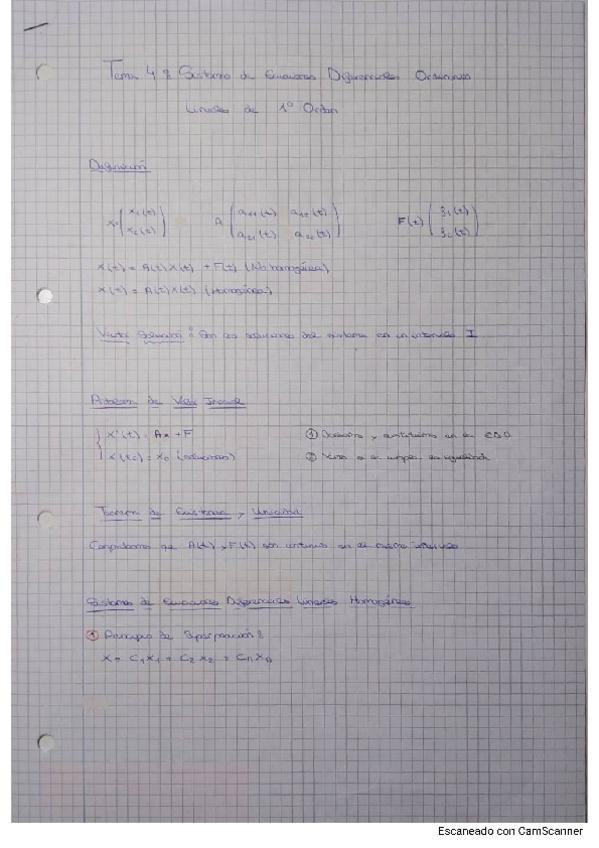 Tema 4: Sistema de Ecuaciones Diferenciales Ordinarias
Lineales de 1º Orden
Definición
X= ( x1(t) x2(t) ) A ( a11(t) a12(t) a21(t) a22(t) ) F(t) ( f1(t) f2(t) )
X'(t) = A(t)X(t) + F(t) (No homogénea)
X'(t) = A(t)X(t) (Homogénea)
Vector Solución: Son las soluciones del sistema en un intervalo I
Problema de Valor Inicial
X'(t) = Ax + F ① Derivamos y sustituimos en la EDO
X(t0) = x0 (soluciones) ② se cumple la igualdad
Teorema de Existencia y Unicidad
Comprobamos que A(t) y F(t) son continuas en el mismo intervalo
Sistemas de Ecuaciones Diferenciales Lineales Homogéneos
① Principio de Superposición:
X = C1X1 + C2X2 + CnXn
Escaneado con CamScanner